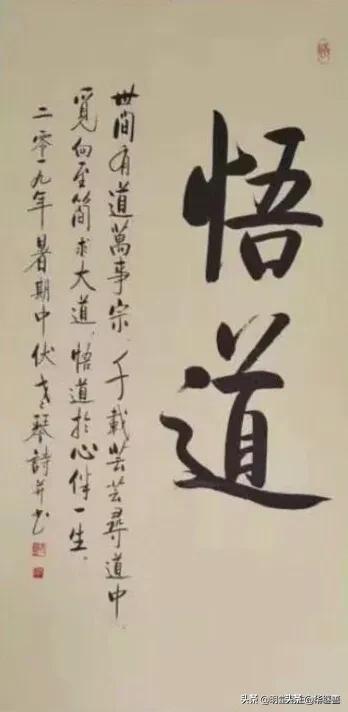 悟道
世间有道萬事宗,千載芸芸尋道中,
覓向至简求大道,悟道於心伴一生,
二零一九年暑期中伏 琴詩并书